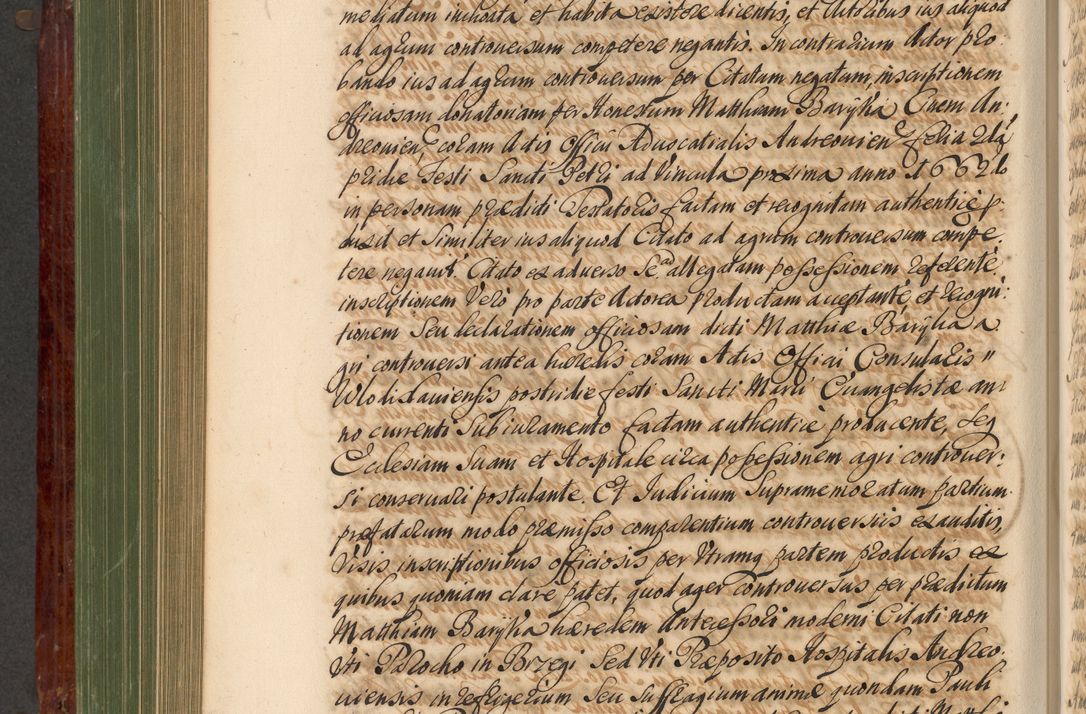 mediatum inchoata et habita existere dicentis, et Actoribus ius aliquod
ad agrum controuersum competere negantis. In contrarium Actor pro-
bando ius ad agrum controuersum per Citatum negatum, inscriptionem
officiosam donatoriam per Honestum Matthiam Baryłka Ciuem An-
dreouien: coram Actis Officii Aduocatialis Andreouien: feria 2da
pridie Festi Sancti Petri ad Vincula proxima anno 1662do
in personam prædicti Testatoris factam et recognitam authentice p-
duxit et Similiter ius aliquod Citato ad agrum controuersum compe-
tere negauit. Citato ex aduerso Se ad allegatam possessionem referente
inscriptionem Vero pro parte Actorea productam acceptante, et recogni-
tionem Seu declarationem officiosam dicti Matthiæ Baryłka a
gri controuersi antea hæredis coram Actis Officii Consularis
Wlodislauiensis postridie festi Sancti Marci Euangelistæ an
no currenti Sub iuramento factam authentice producente, Seq
Ecclesiam Suam et Hospitale circa possessionem agri controuer-
si conseruari postulante. Et Iudicium Suprамemoratum partium
præfatarum modo præmisso comparentium controuersiis exauditis,
Visis inscriptionibus officiosis per Vtramq partem productis ex
quibus quoniam clare patet, quod ager controuersus per prædictum
Matthiam Baryłka hæredem Antecessori moderni Citati non
Vti Parocho in Brzegi Sed Vti Præposito Hospitalis Andreo-
uiensis in refrigerium Seu Suffragium animæ quondam Pauli